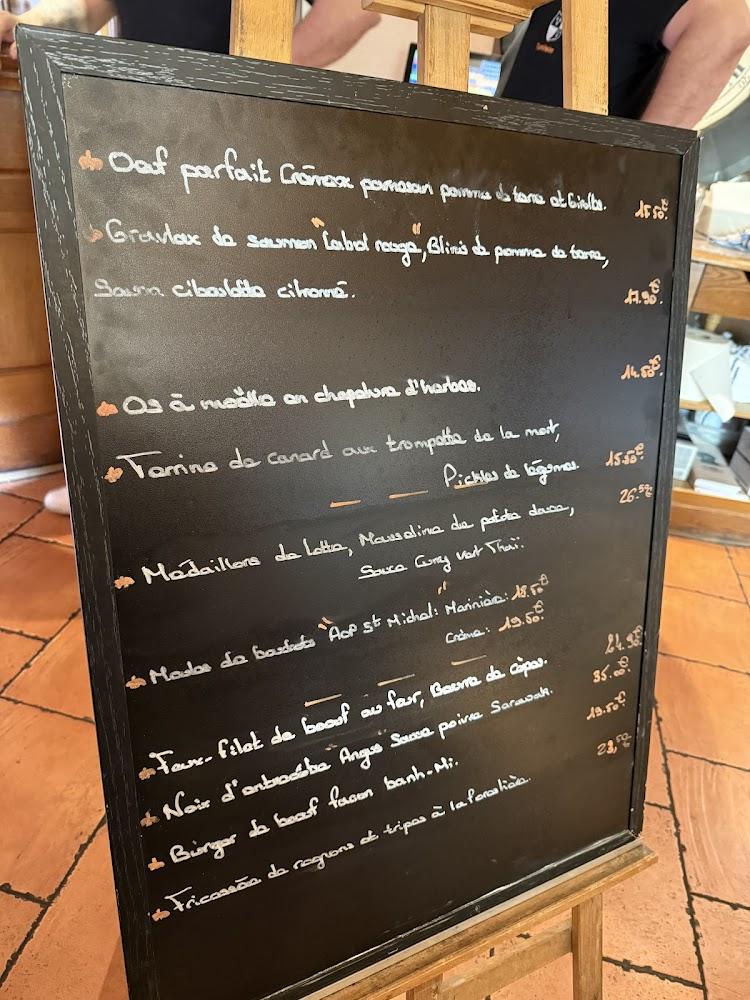 Oeuf parfait Crémeux parmesan pomme de terre et Girolles. 15.50€
Gravlax de saumon "Label rouge", Blinis de pomme de terre,
Sauce ciboulette citronné. 17.90€
Os à moëlle en chapelure d'herbes. 14.50€
Terrine de canard aux trompette de la mort,
Pickles de légumes 15.50€
Médaillons de lotte, Mousseline de patate douce, 26.50€
Sauce Curry vert Thaï.
Moules de bouchots "AOP St Michel: Marinière: 18.50€
Crème: 19.50€
Faux-filet de boeuf au four, Beurre de cèpes. 24.90€
Noix d'entrecôte "Angus" Sauce poivre Sarawak. 35.00€
Burger de boeuf façon banh-Mi. 19.50€
Fricassée de rognons et tripes à la forestière.